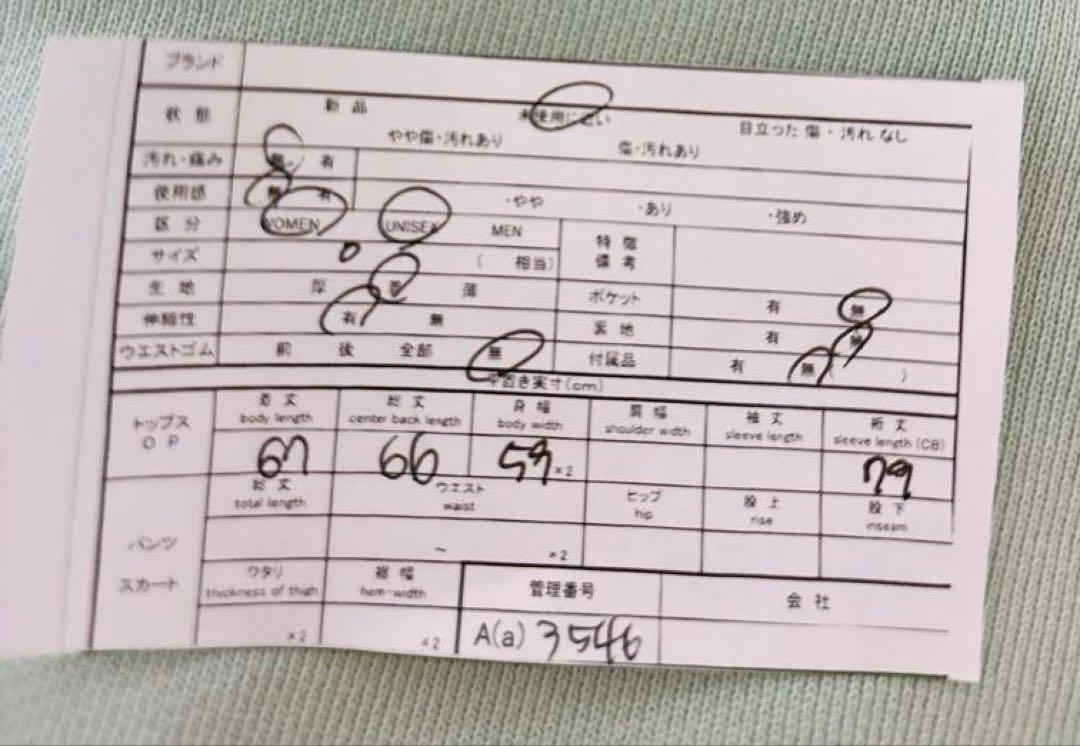 ブランド
状態 新品 未使用に近い 目立った傷・汚れなし
やや傷・汚れあり 傷・汚れあり
汚れ・痛み 無 有
使用感 無 有 ・やや ・あり ・強め
区分 WOMEN UNISEX MEN 特徴備考
サイズ 0 ( 相当)
生地 厚 普 薄 ポケット 有 無
伸縮性 有 無 裏地 有 無
ウエストゴム 前 後 全部 無 付属品 有 無( )
平置き実寸(cm)
トップス OP 着丈 総丈 身幅 肩幅 袖丈 裄丈
body length center back length body width shoulder width sleeve length sleeve length (CB)
66 ×2 79
総丈 ウエスト ヒップ 股上 股下
total length waist hip rise inseam
パンツ ～ ×2
スカート ワタリ 裾幅 管理番号 会社
thickness of thigh hem-width
×2 ×2 A(a) 3546